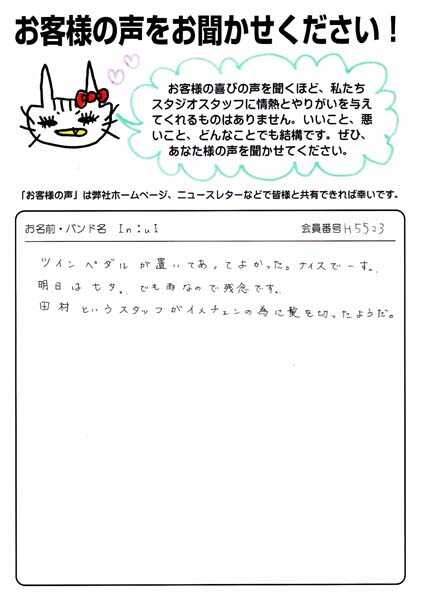 お客様の声をお聞かせください！
お客様の喜びの声を聞くほど、私たち
スタジオスタッフに情熱とやりがいを与え
てくれるものはありません。いいこと、悪
いこと、どんなことでも結構です。ぜひ、
あなた様の声を聞かせてください。
「お客様の声」は弊社ホームページ、ニュースレターなどで皆様と共有できれば幸いです。
お名前・バンド名 In:uI 会員番号 H5523
ツインペダルが置いてあってよかった。ナイスでーす。
明日は七夕。でも雨なので残念です。
田村というスタッフがイメチェンの為に髪を切ったようだ。